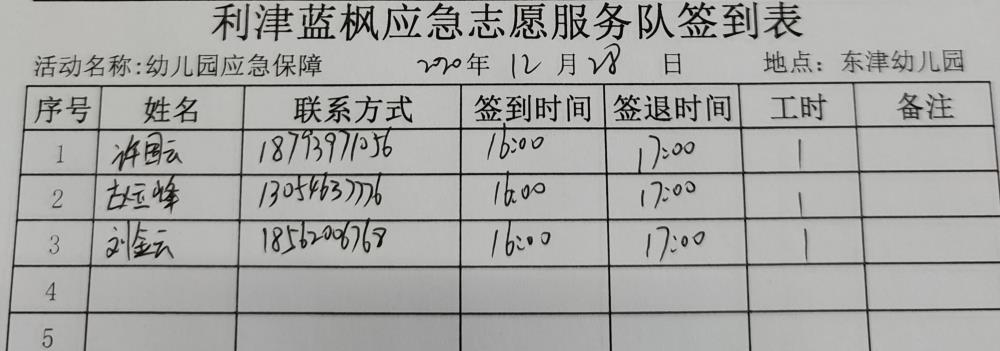 利津蓝枫应急志愿服务队签到表
活动名称:幼儿园应急保障 2020年 12 月 28 日 地点：东津幼儿园
序号 姓名 联系方式 签到时间 签退时间 工时 备注
1 许国云 18793971056 16:00 17:00 1
2 赵立峰 13054637776 16:00 17:00 1
3 刘金云 18562006768 16:00 17:00 1
4
5